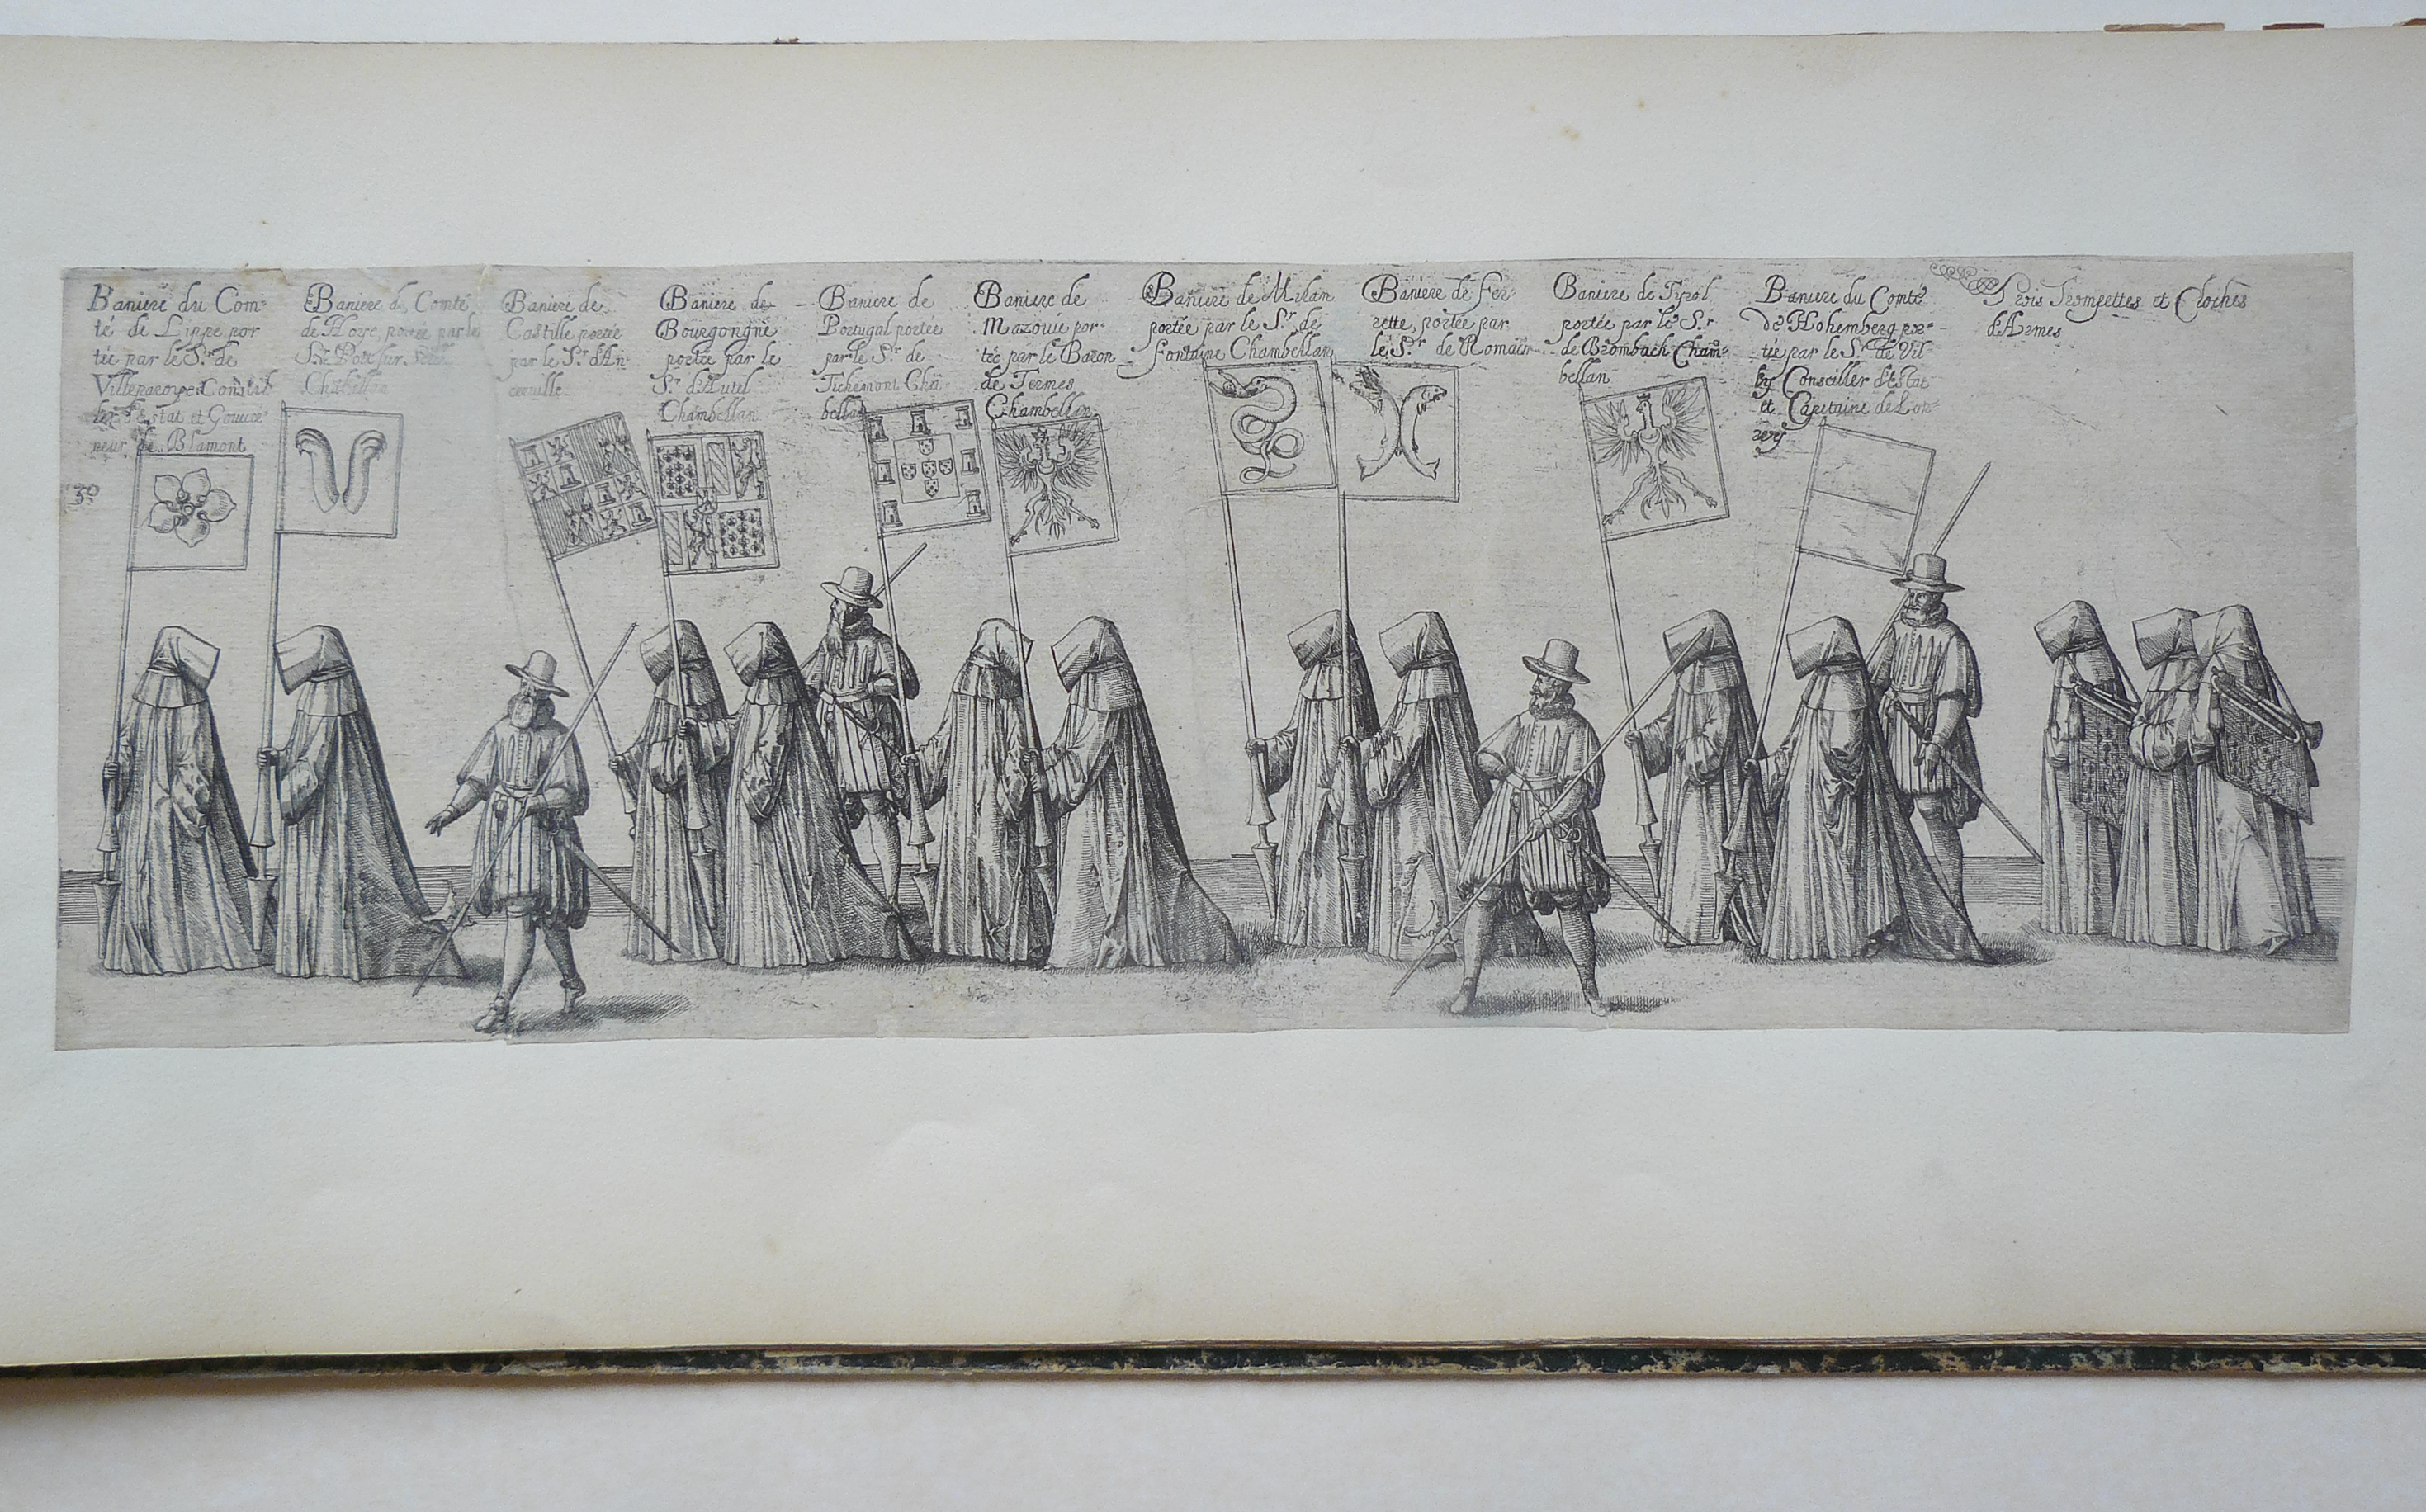 Baniere du Com-
té de Lippe por
tée par le Sr. de
Villeparoys Conseil
ler d'Estat et Gouver
neur de Blamont
30
Baniere du Comté
de Hoye, portée par le
Chābellan
Baniere de
Castille portée
par le Sr. d'An
Baniere de
Bourgongne
portée par le
Sr. d'Autel
Chambellan
Baniere de
Portugal portée
par le Sr. de
Tichemont Chā
bellan
Baniere de
Mazouie por-
tée par le Baron
de Termes
Chambellan
Baniere de Milan
portée par le Sr. de
Fontaine Chambellan
Baniere de Fer-
rette, portée par
le Sr. de Romain
Baniere de Tyrol
portée par le Sr
de Brombach Cham-
bellan
Baniere du Comté
de Hohemberg por-
tée par le Sr. de Vil-
ley Conseiller d'Estat
et Capitaine de Lon-
Trois Trompettes et Cloches
d'Armes